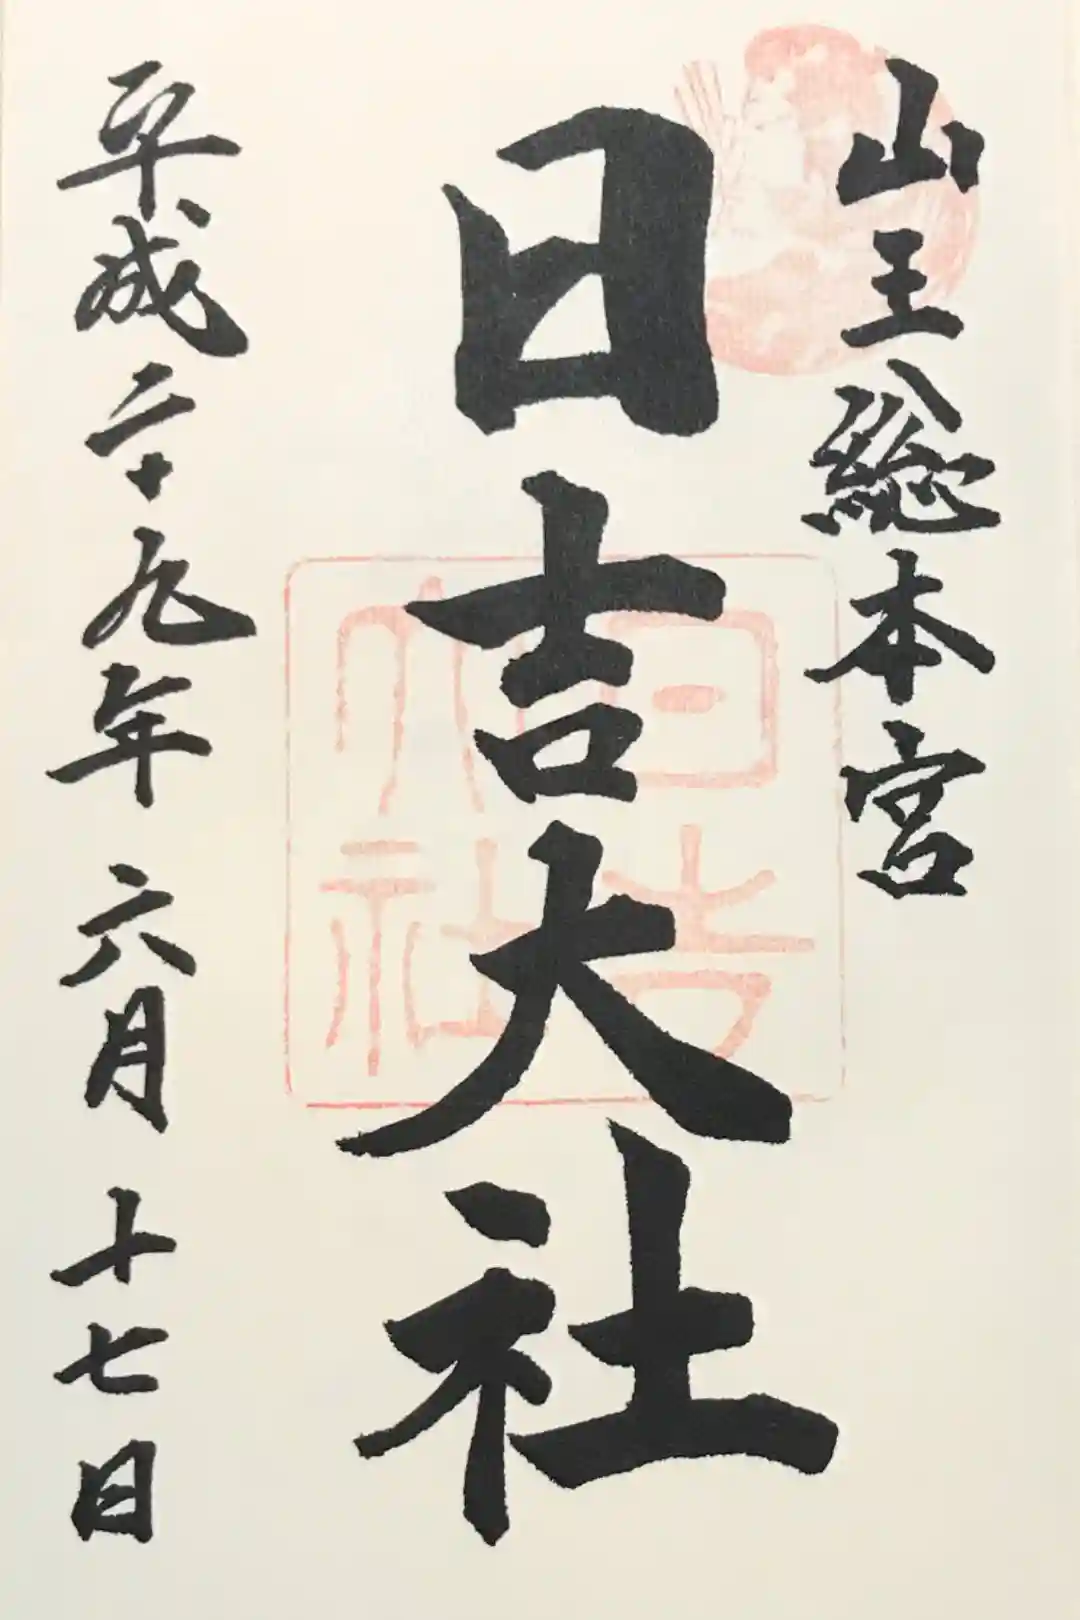 山王総本宮
日吉大社
平成二十九年 六月 十七日
日吉
大社